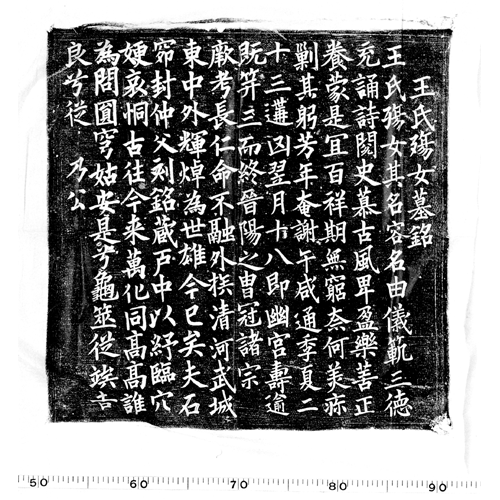 王氏殤女墓銘
王氏殤女其名容名由儀範三德
充誦詩閱史慕古風卑盈樂善正
養蒙是宜百祥期無窮奈何美疹
剿其躬芳年奄謝午咸通季夏二
十三遘凶翌月十八即幽宮壽逾
既笄三而終晉陽之胄冠諸宗
厥考長仁命不融外族清河武城
東中外輝焯為世雄今已矣夫石
窌封仲父刻銘藏戶中以紓臨穴
哀恫古往今來萬化同高高誰
為問圓穹姑安是兮龜筮從竢吉
良兮從乃公
50 60 70 80 90